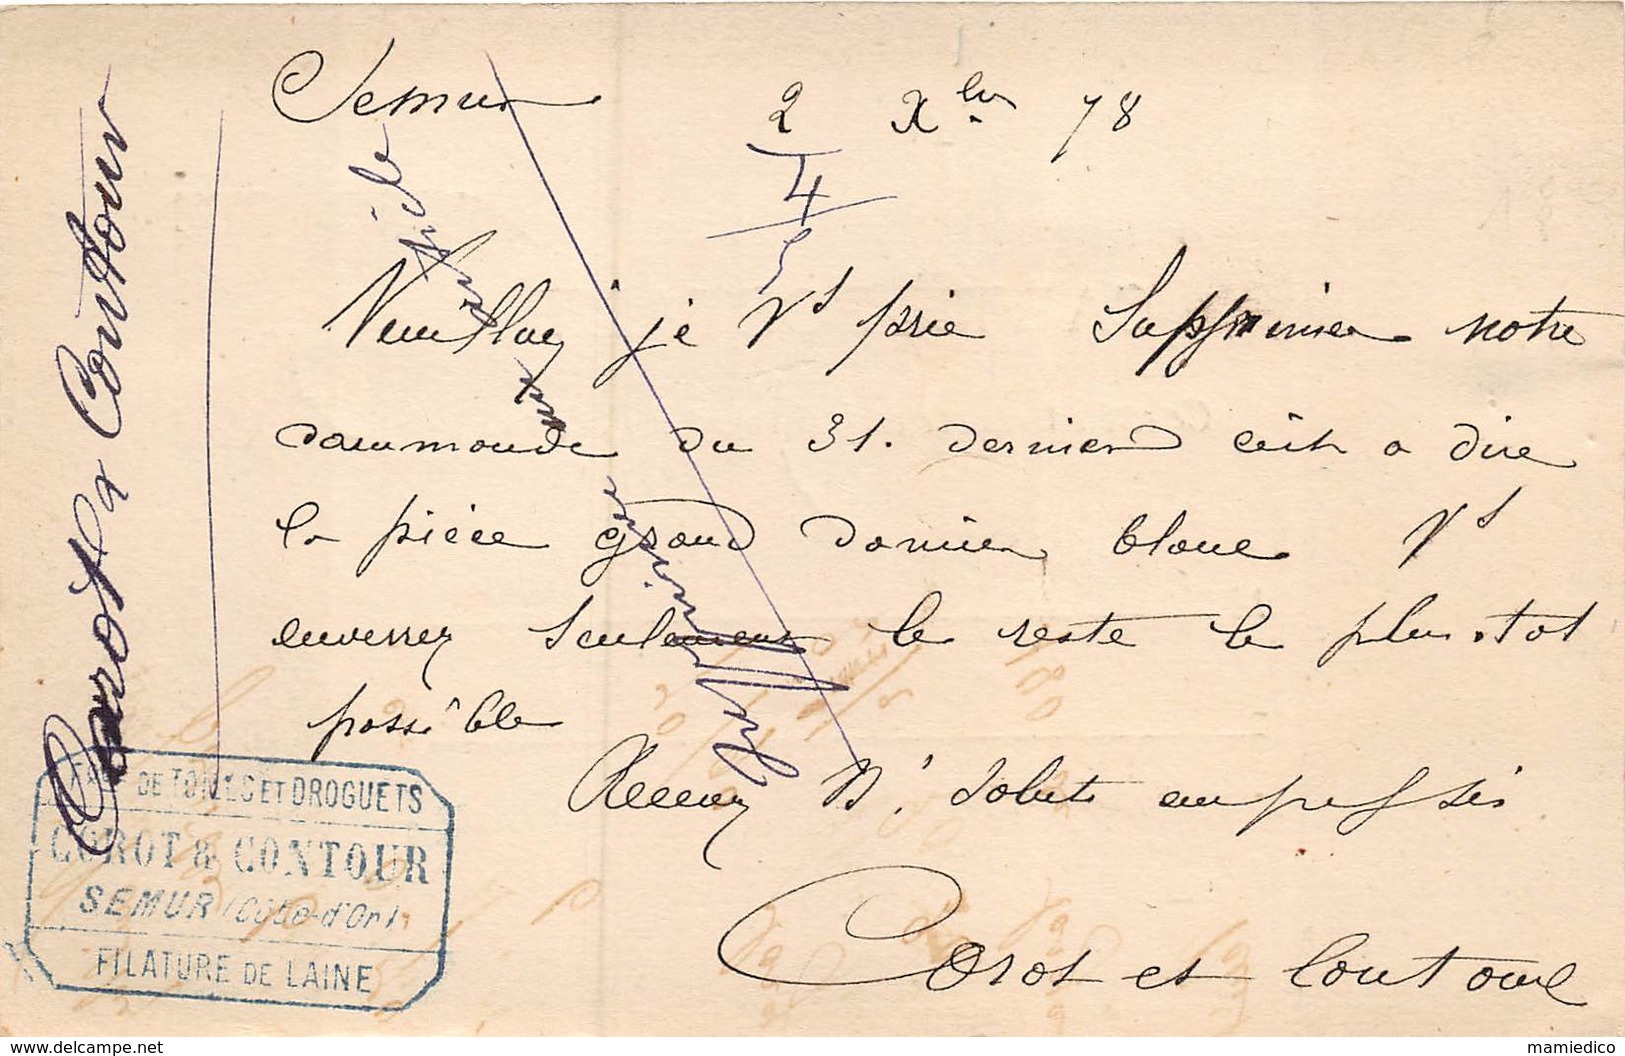 Semur 2 Xbre 78
4
5
Veuillez je Vs prie Supprimer notre
dammande du 31. dernier cèst a dire
la pièce grand damier blanc Vs
enverrez seulement le reste le plus tot
possible
Recevez N. Saluts empressés
Corot et Contour
Corot & Contour
FABT DE TOILES ET DROGUETS
COROT & CONTOUR
SEMUR (Côte-d'Or)
FILATURE DE LAINE
mamiedico